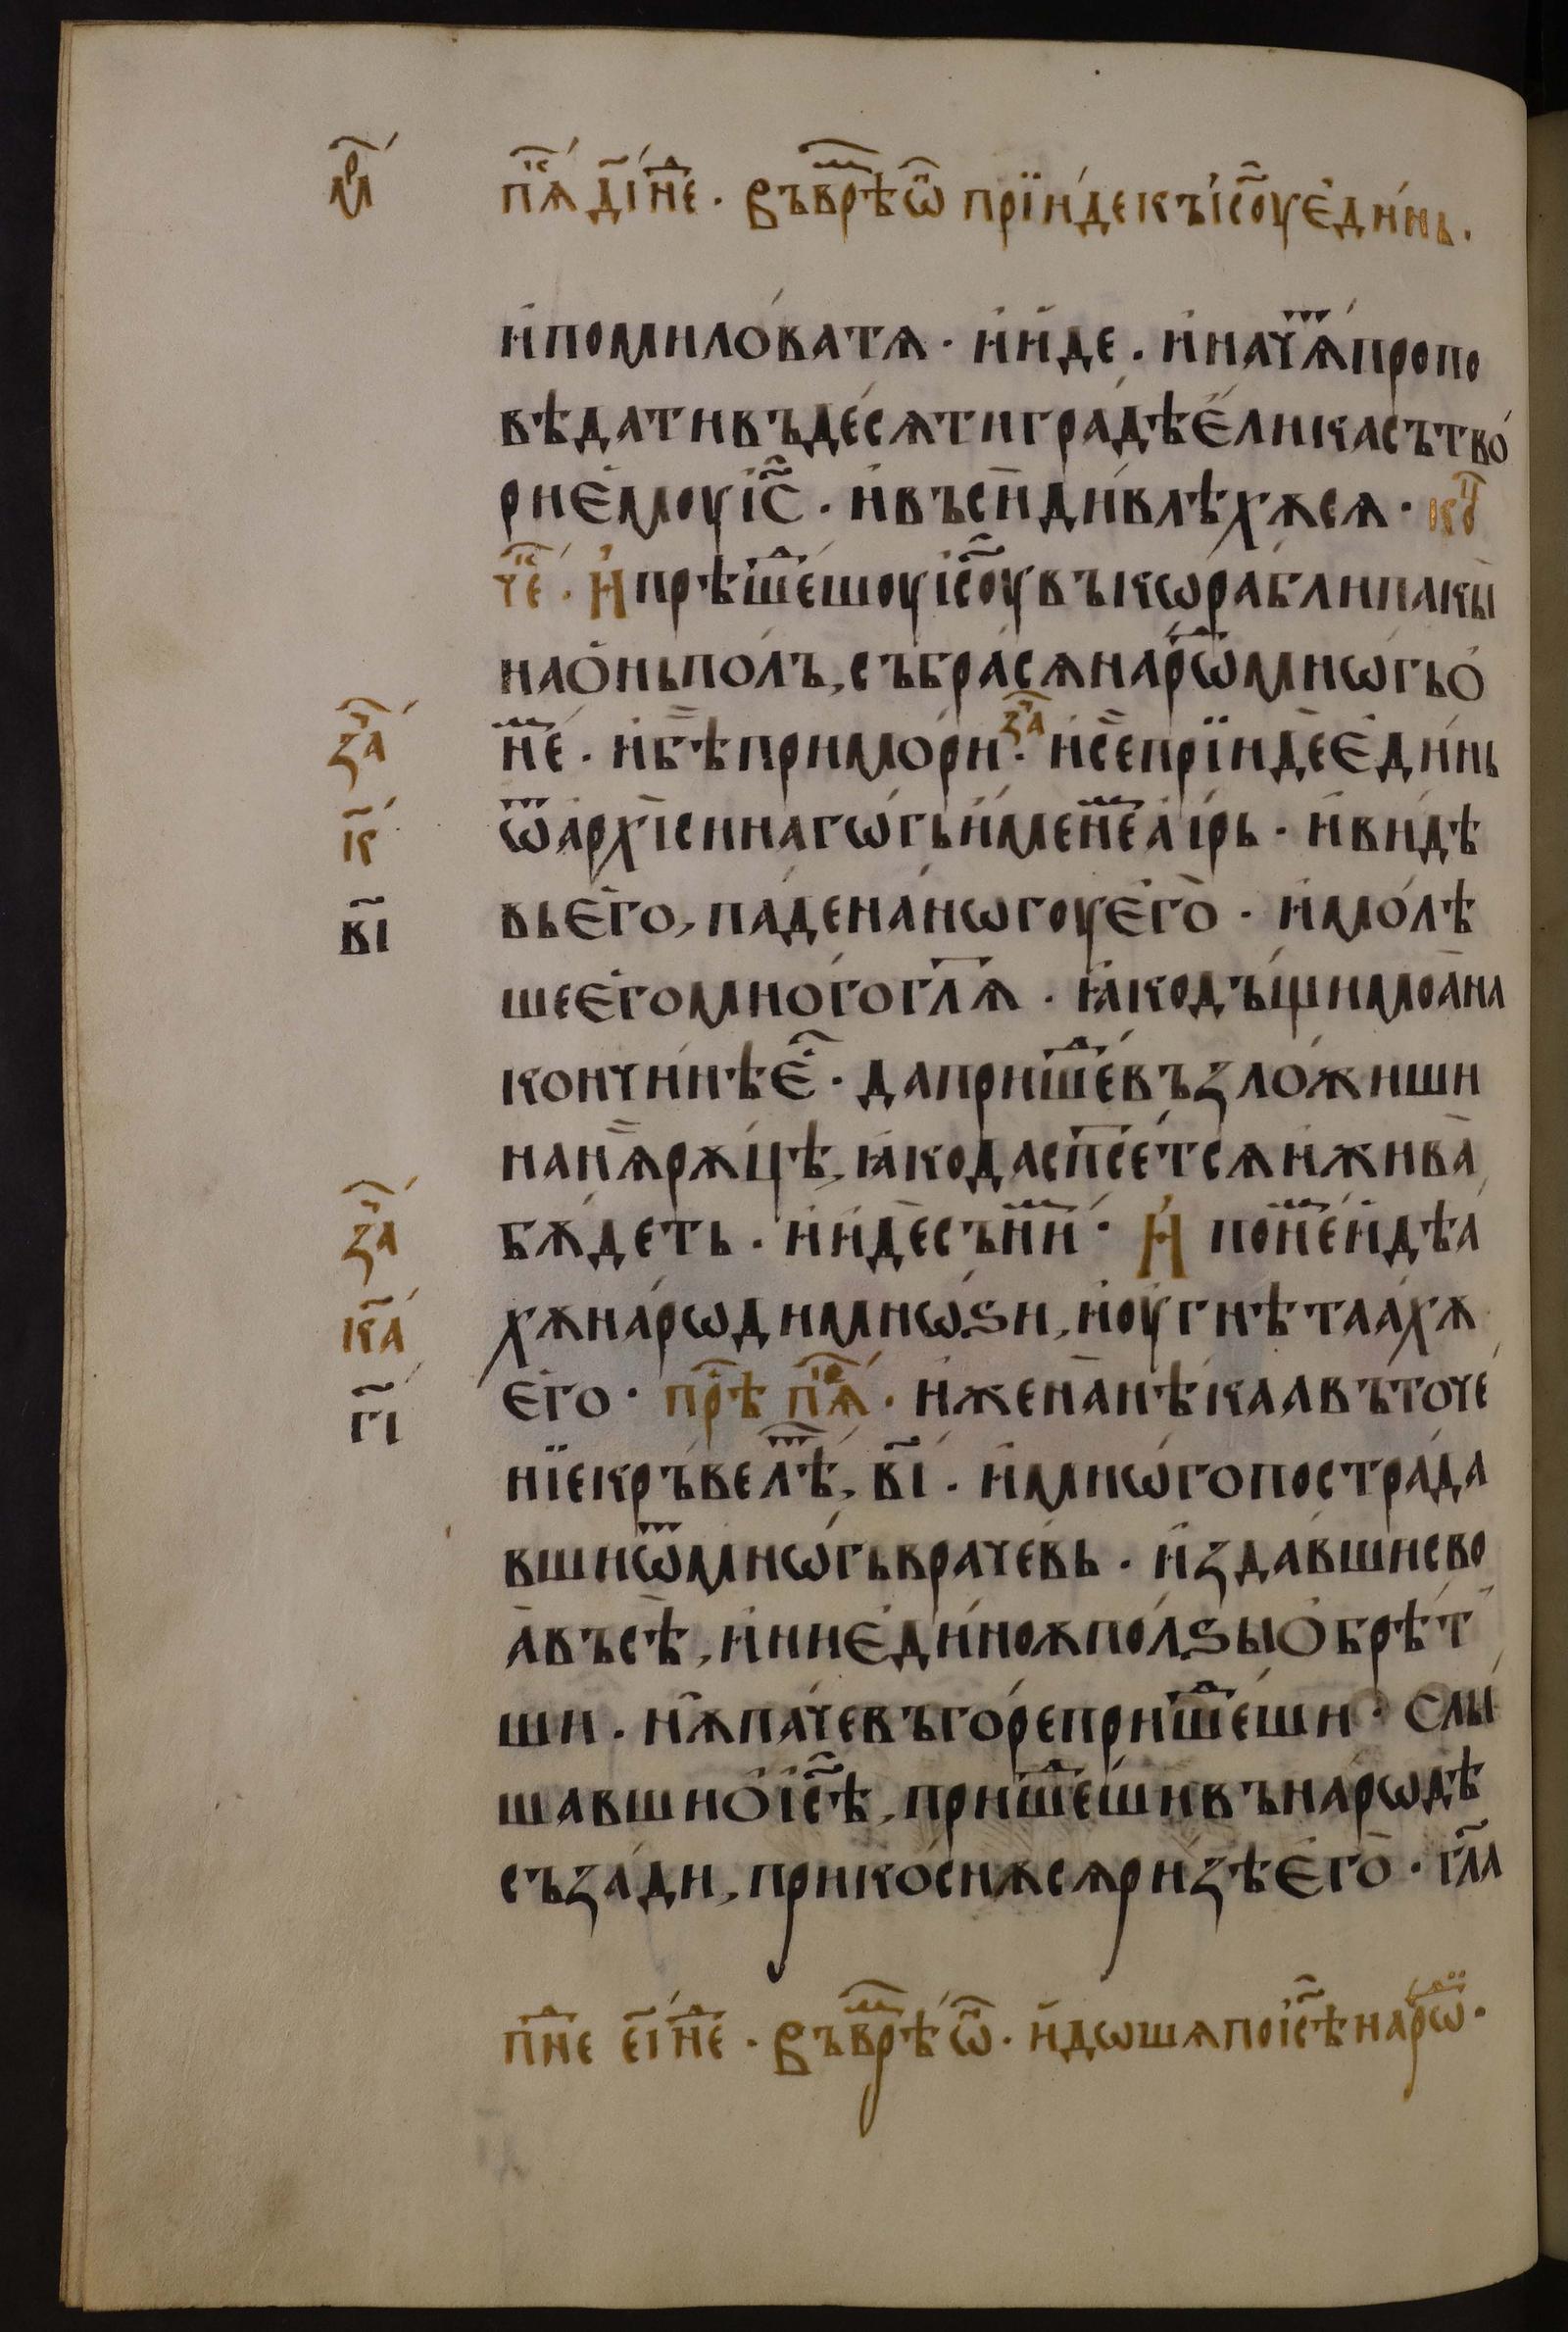 мр҃ пⷦ҇ѧ д҃і нⷣе · въвⷬ҇ѣѿ прїи́декъі҆с҃оуе҆ди́нь ·
и҆помило́ватѧ · и҆и҆де · и҆начѧⷮпропо
вѣдативъде́сѧтигра́дѣе҆ликасътво́
рие҆моуі҆с҃ · и҆въсидивлѣ́хѫсѧ · коⷰ
чеⷦ · И҆прѣшеⷣ́шоуіс҃оувъкѡ́рабли́пакы
нао҆ньполъ, събра́сѧнарѡⷣмнѡ́гьо҆
нⷨе · и҆бѣпримо́ри · заⷱ҇ и҆сепрїидее҆ди́нь
заⷱ҇
к҃ ѿⷮархісинагѡ́гьи҆менеⷨаі́рь · и҆ви́дѣ
в҃і вье҆го, па́дена́нѡгоуе҆го · и҆мо́лѣ
шее҆гомно́гогл҃ѧ · ꙗ҆кодъ́щимоана
кончи́нѣеⷭ · дапришеⷣ́възло́жиши
нанѧ̀рѫцѣ, ꙗ҆кодасп҃се́тсѧи҆жива
заⷱ҇ бѫ́деть · и҆и҆десъниⷨ · И҆ понеⷨи҆дѣа́
к҃а хѫна́рѡдимнѡ́ѕи, и҆оугнѣтаа́хѫ
г҃і е҆го · прⷣѣ пⷦ҇ѧ · и҆женанѣ́каавъ́точе́
нїекръ́велⷮѣ, в҃і · и҆мнѡ́гопострада
вшиѿⷮмнѡ́гьвраче́вь · и҆здавшисво
а҆въсѣ, и҆ние҆ди́ноѫпо́лѕыо҆брѣ́т
ши · нѫ̀па́чевъго́репришеⷣ́ши · слы́
шавшио҆і҆с҃ѣ, пришеⷣ́шивъна́рѡдѣ
съза́ди, прико́снѫсѧри́зѣе҆го · гл҃а
пⷩ҇не е҃і нⷣе · въвⷬ҇ѣ ѿ · и҆дѡшѧпоі҆с҃ѣнарѡⷣ ·